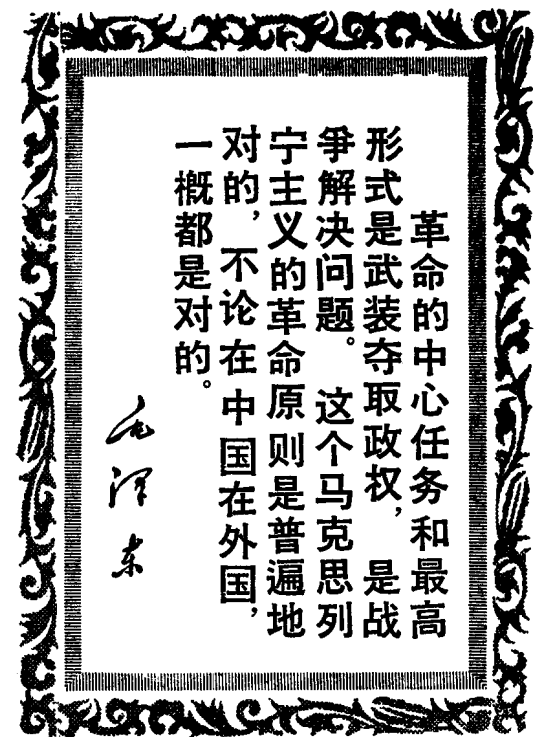 革命的中心任务和最高
形式是武装夺取政权，是战
争解决问题。这个马克思列
宁主义的革命原则是普遍地
对的，不论在中国在外国，
一概都是对的。
毛泽东